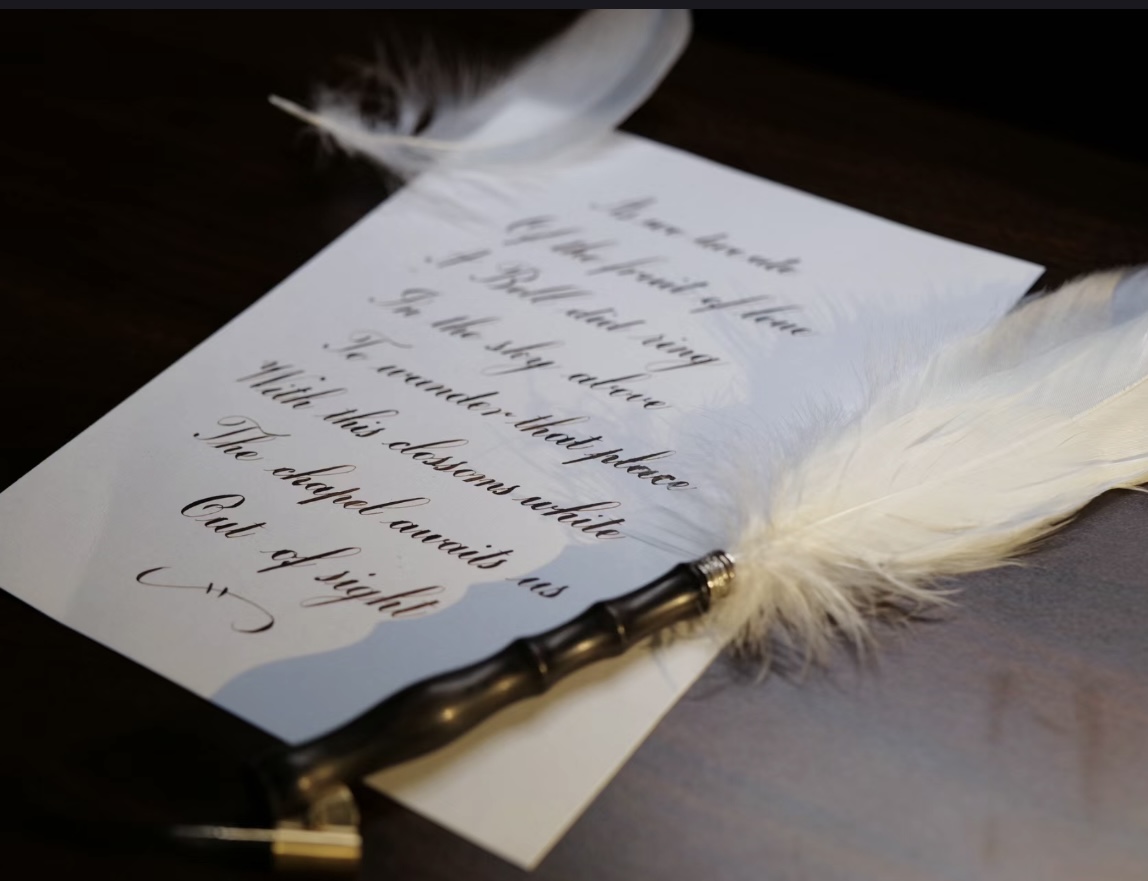 As we two ate
Of the fruit of love
A Bell did ring
In the sky above
To wander that place
With this clossoms white
The chapel awaits us
Out of sight